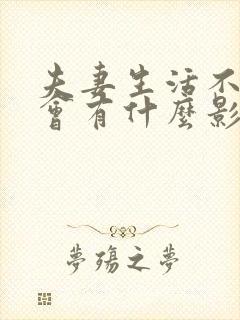 夫妻生活不
會有什麼影
夢殤之夢